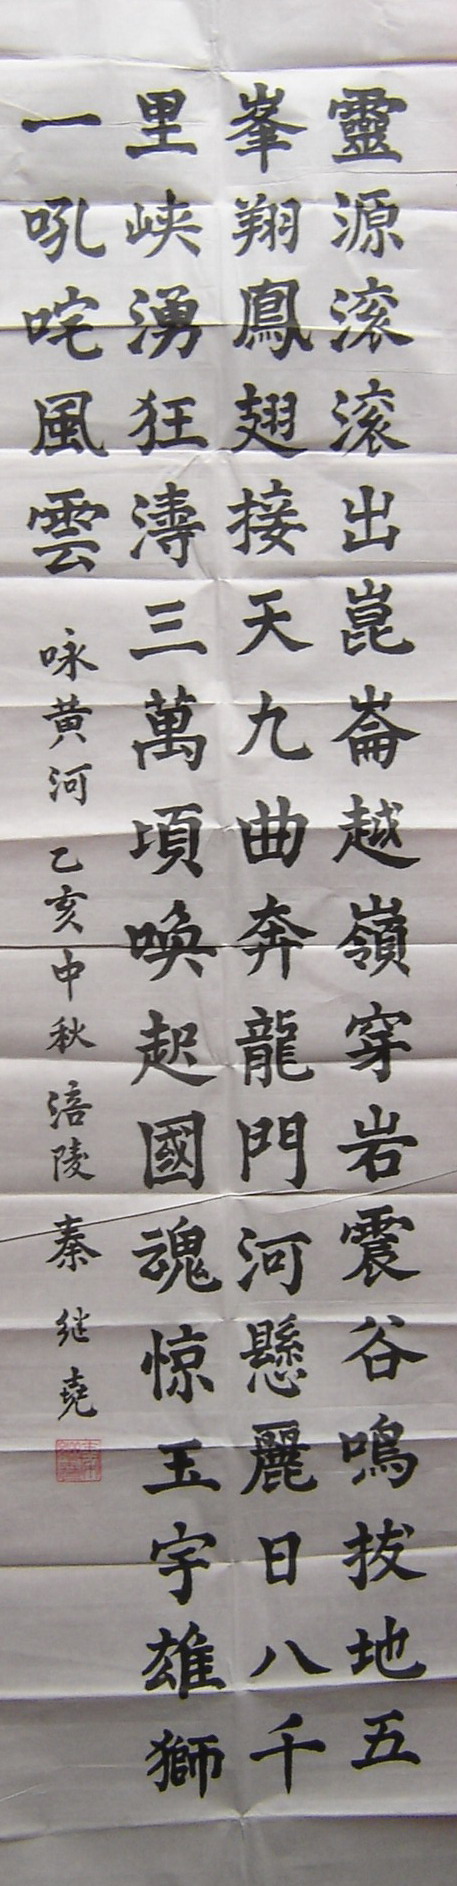 靈源滚滚出崑崙越嶺穿岩震谷鳴拔地五
峯翔鳳翅接天九曲奔龍門河懸麗日八千
里峡湧狂濤三萬頃喚起國魂惊玉宇雄獅
一吼咤風雲
咏黄河 乙亥中秋 涪陵 秦继尧